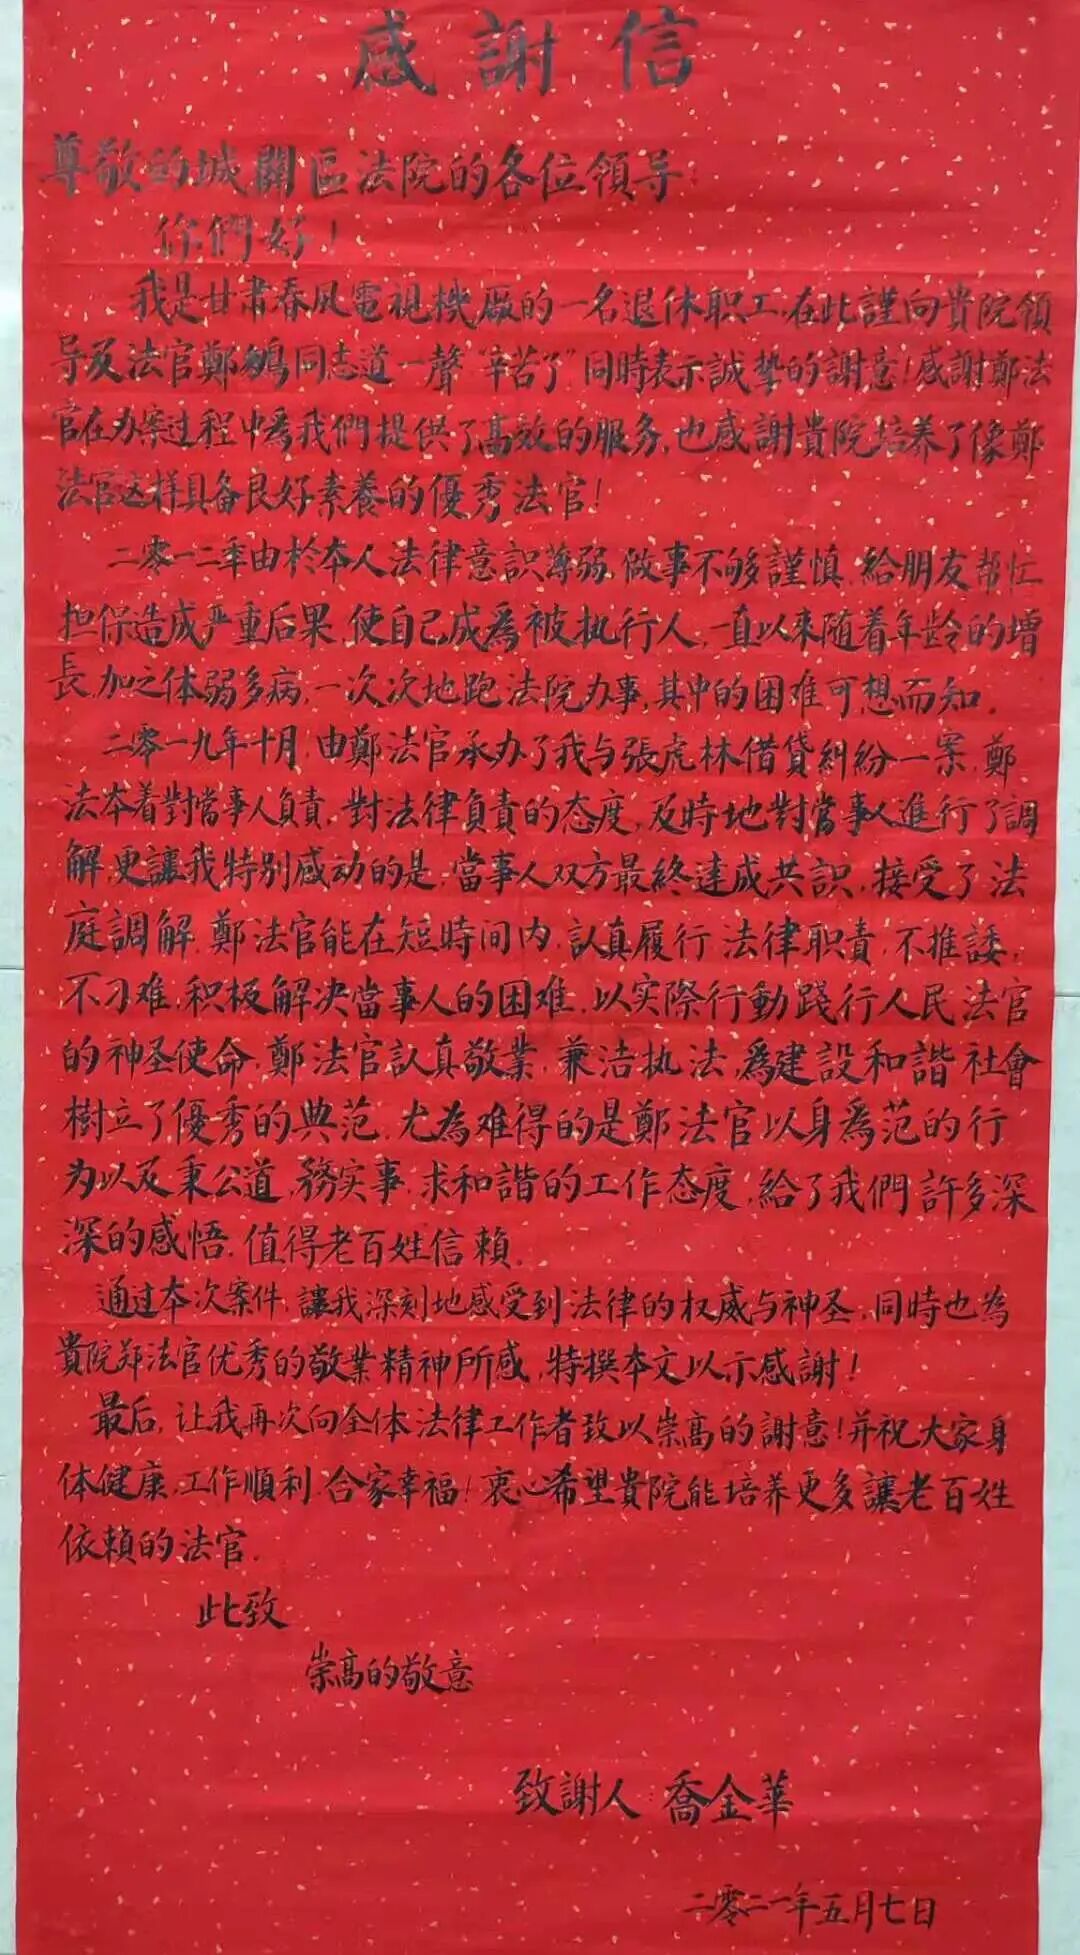 感謝信
尊敬的城關區法院的各位領导:
你們好!
我是甘肃春风電視機廠的一名退休职工,在此謹向貴院領
导及法官鄭鵷同志道一聲"辛苦了"同時表示誠挚的謝意!感謝鄭法
官在办案过程中為我們提供了高效的服务,也感謝貴院培养了像鄭
法官这样具备良好素養的優秀法官!
二零一二年由於本人法律意识薄弱,做事不够謹慎,給朋友帮忙
担保造成严重后果,使自己成為被执行人,一直以來随着年龄的增
長,加之体弱多病,一次次地跑法院办事,其中的困难可想而知。
二零一九年十月,由鄭法官承办了我与張虎林借貸糾紛一案,鄭
法本着對當事人負責,對法律負責的态度,及時地對當事人進行了調
解,更讓我特别感动的是,當事人双方最終達成共识,接受了法
庭調解,鄭法官能在短時间内,認真履行法律职責,不推諉,
不刁难,积极解决當事人的困难,以实際行動踐行人民法官
的神圣使命,鄭法官認真敬業,兼洁执法,為建設和諧社會
樹立了優秀的典范,尤為难得的是鄭法官以身為范的行
为以及秉公道,務实事,求和諧的工作态度,給了我們許多深
深的感悟,值得老百姓信賴。
通过本次案件,讓我深刻地感受到法律的权威与神圣,同時也為
貴院郑法官优秀的敬業精神所感,特撰本文以示感謝!
最后,让我再次向全体法律工作者致以崇高的謝意!并祝大家身
体健康,工作順利,合家幸福!衷心希望貴院能培养更多讓老百姓
依賴的法官。
此致
崇高的敬意
致謝人 喬金華
二零二一年五月七日